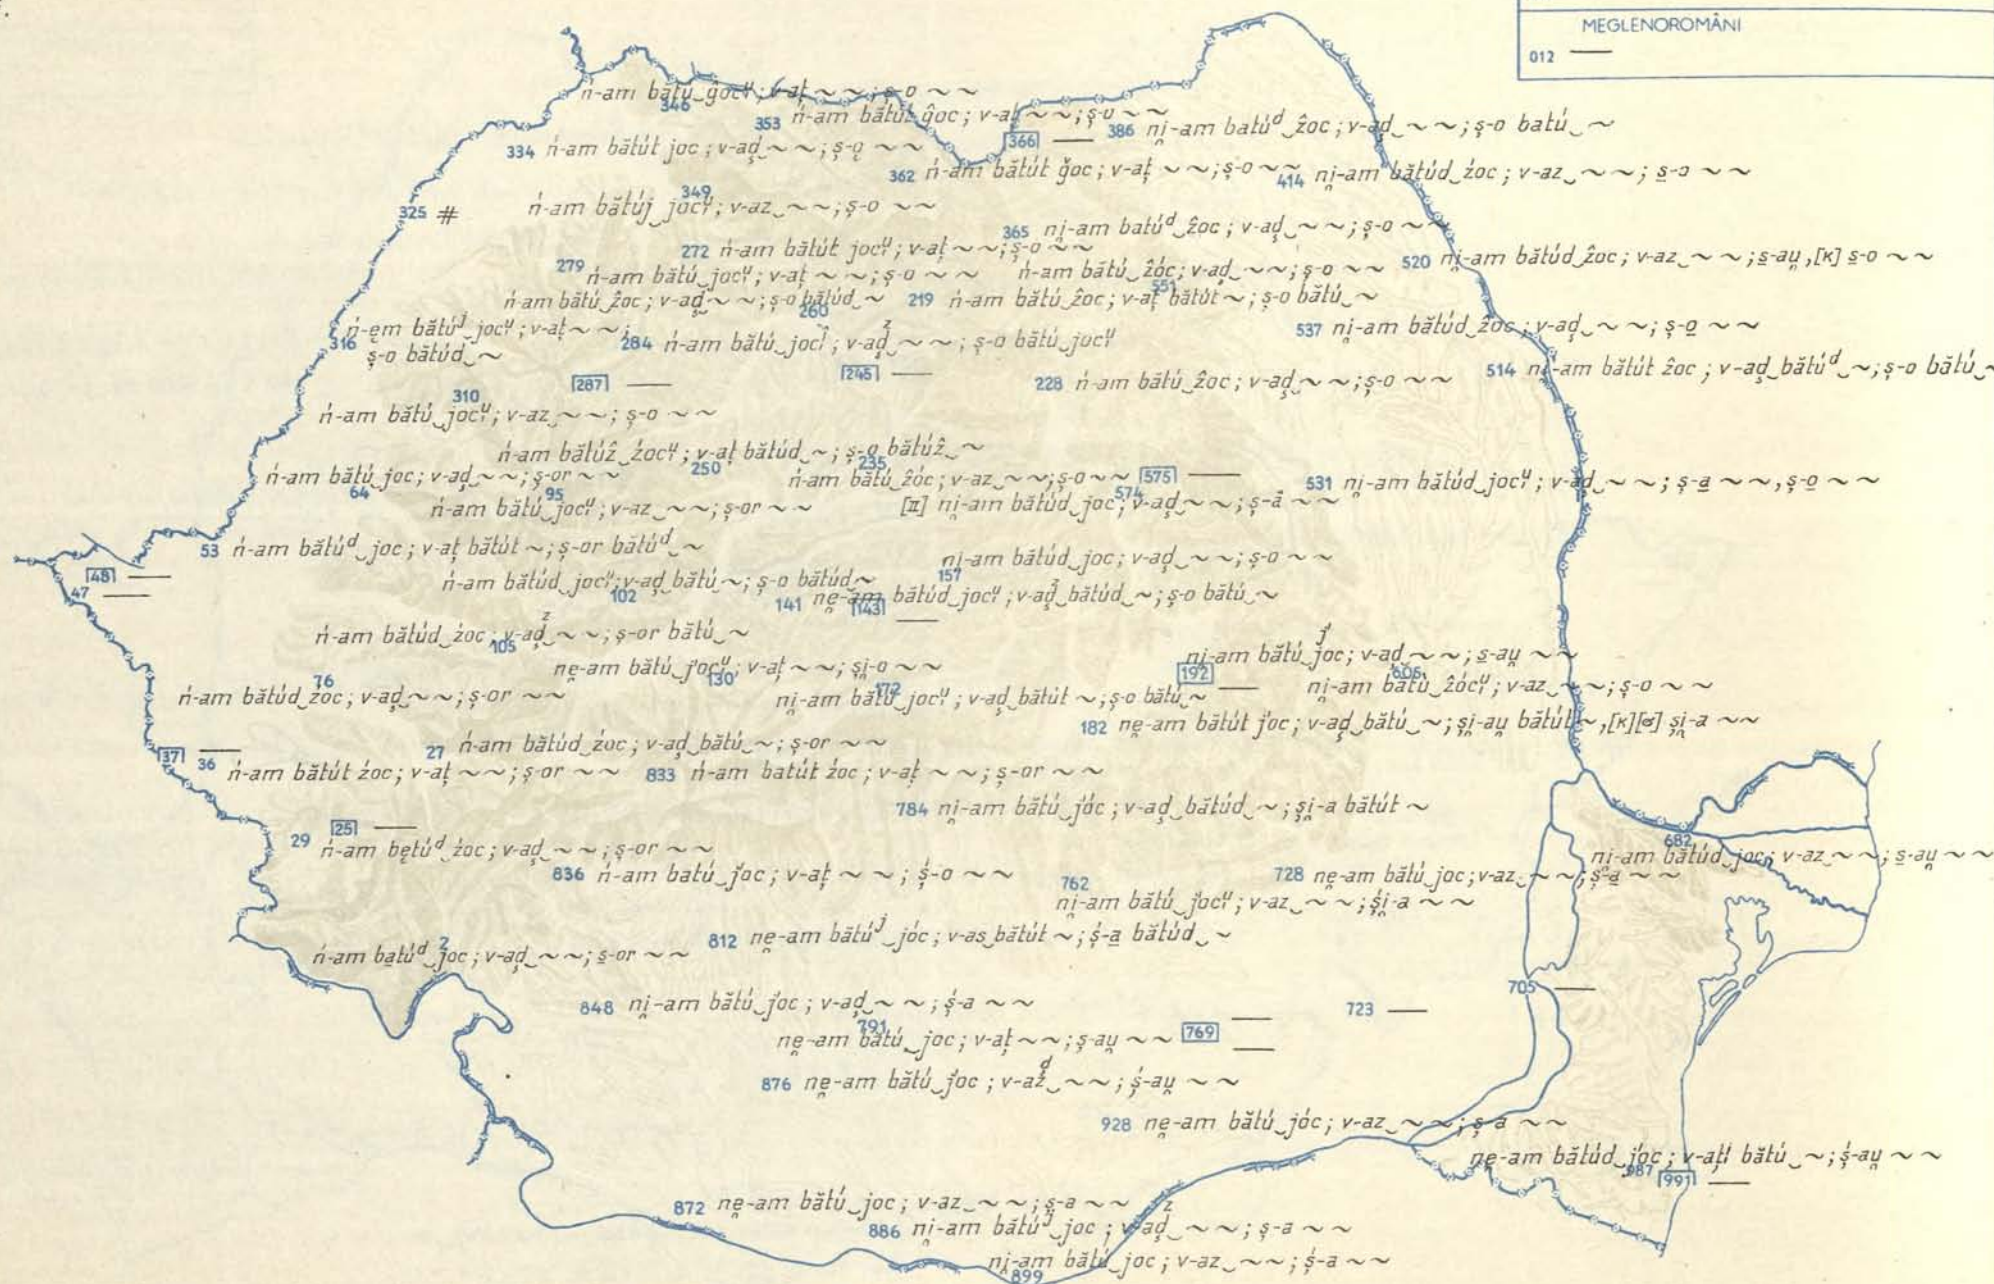 MEGLENOROMÂNI
012 —
346 ń-am bătú‿ĝocᵘ; v-aț ~ ~; ș-o ~ ~
353 ń-am bătút ĝoc; v-aț ~ ~; ș-o ~ ~
366 —
386 ni̯-am batúᵈ‿ẑoc; v-ad̦‿~ ~; ș-o batú‿~
334 ń-am bătút joc; v-ad̦‿~ ~; ș-o̦ ~ ~
362 ń-am bătút ğoc; v-aț ~ ~; ș-o ~ ~
414 ni̯-am bătúd‿żoc; v-az‿~ ~; s̱-o ~ ~
325 #
349 ń-am bătúj‿jocᵘ; v-az‿~ ~; ș-o ~ ~
365 ni̯-am batúᵈ‿ẑoc; v-ad̦‿~ ~; ș-o ~ ~
272 ń-am bătút jocᵘ; v-aț ~ ~; ș-o ~ ~
279 ń-am bătú‿jocᵘ; v-aț ~ ~; ș-o ~ ~
551 ń-am bătú‿żóc; v-ad̦‿~ ~; ș-o ~ ~
520 ni̯-am bătúd‿ẑoc; v-az‿~ ~; s̱-au̯, [K] s̱-o ~ ~
260 ń-am bătú‿ẑoc; v-ad̦‿~ ~; ș-o bătúd‿~
219 ń-am bătú‿ẑoc; v-aț bătút ~; ș-o bătú‿~
316 ń-ęm bătúʲ‿jocᵘ; v-aț ~ ~;
ș-o bătúd‿~
284 ń-am bătú‿jocî; v-ad̦ᶻ‿~ ~; ș-o bătú‿jocᵘ
537 ni̯-am bătúd‿ẑoc; v-ad̦‿~ ~; ș-o̱ ~ ~
514 ni̯-am bătút ẑoc; v-ad̦‿bătúᵈ‿~; ș-o bătú‿~
287 —
245 —
228 ń-am bătú‿ẑoc; v-ad̦‿~ ~; ș-o ~ ~
310 ń-am bătú‿jocᵘ; v-az‿~ ~; ș-o ~ ~
250 ń-am bătúẑ‿żocᵘ; v-aț bătúd‿~; ș-o bătúẑ‿~
64 ń-am bătú‿joc; v-ad̦‿~ ~; ș-or ~ ~
235 ń-am bătú‿ẑóc; v-az‿~ ~; ș-o ~ ~
575 —
531 ni̯-am bătúd‿jocᵘ; v-ad̦‿~ ~; ș-a̱ ~ ~, ș-o̱ ~ ~
95 ń-am bătú‿jocᵘ; v-az‿~ ~; ș-or ~ ~
574 [II] ni̯-am bătúd‿joc; v-ad̦‿~ ~; ș-å ~ ~
53 ń-am bătúᵈ‿joc; v-aț bătút ~; ș-or bătúᵈ‿~
157 ni̯-am bătúd‿joc; v-ad̦‿~ ~; ș-o ~ ~
48 —
47 —
102 ń-am bătúd‿jocᵘ; v-ad̦‿bătú‿~; ș-o bătúd‿~
141 ne̯-am bătúd‿jocᵘ; v-ad̦ᶻ‿bătúd‿~; ș-o bătú‿~
143 —
105 ń-am bătúd‿żoc; v-ad̦ᶻ‿~ ~; ș-or bătú‿~
130 ne̯-am bătú‿j́ocᵘ; v-aț ~ ~; și̯-o ~ ~
ni̯-am bătú‿joc; v-ad̦‿~ ~; s̱-au̯ ~ ~
192 —
76 ń-am bătúd‿żoc; v-ad̦‿~ ~; ș-or ~ ~
172 ni̯-am bătú‿jocᵘ; v-ad̦‿bătút ~; ș-o bătú‿~
605 ni̯-am bătú‿ẑócᵘ; v-az‿~ ~; ș-o ~ ~
182 ne̯-am bătút j́oc; v-ad̦‿bătú‿~; și̯-au̯ bătút ~, [K] și̯-a ~ ~
27 ń-am bătúd‿żoc; v-ad̦‿bătú‿~; ș-or ~ ~
37 —
36 ń-am bătút żoc; v-aț ~ ~; ș-or ~ ~
833 ń-am batút żoc; v-aț ~ ~; ș-or ~ ~
784 ni̯-am bătú‿j́óc; v-ad̦‿bătúd‿~; și̯-a bătút ~
25 —
29 ń-am bętúᵈ‿żoc; v-ad̦‿~ ~; ș-or ~ ~
682 ni̯-am bătúd‿joc; v-az‿~ ~; s̱-au̯ ~ ~
836 ń-am batú‿j́oc; v-aț ~ ~; ș́-o ~ ~
728 ne̯-am bătú‿joc; v-az‿~ ~; ș-a̱ ~ ~
762 ni̯-am bătú‿j́ocᵘ; v-az‿~ ~; ș́i̯-a ~ ~
812 ne̯-am bătúʲ‿jóc; v-as‿bătút ~; ș́-a̱ bătúd‿~
2 ń-am ba̱túᵈ‿joc; v-ad̦‿~ ~; s̱-or ~ ~
848 ni̯-am bătú‿j́oc; v-ad̦‿~ ~; ș́-a ~ ~
705 —
723 —
791 ne̯-am bătú‿joc; v-aț ~ ~; ș-au̯ ~ ~
769 —
—
876 ne̯-am bătú‿j́oc; v-aẑᵈ‿~ ~; ș́-au̯ ~ ~
928 ne̯-am bătú‿jóc; v-az‿~ ~; ș-a ~ ~
987 ne̯-am bătúd‿j́oc; v-aț bătú‿~; ș́-au̯ ~ ~
991 —
872 ne̯-am bătú‿joc; v-az‿~ ~; ș-a ~ ~
886 ni̯-am bătúʲ‿joc; v-ad̦ᶻ‿~ ~; ș-a ~ ~
899 ni̯-am bătú‿joc; v-az‿~ ~; ș́-a ~ ~